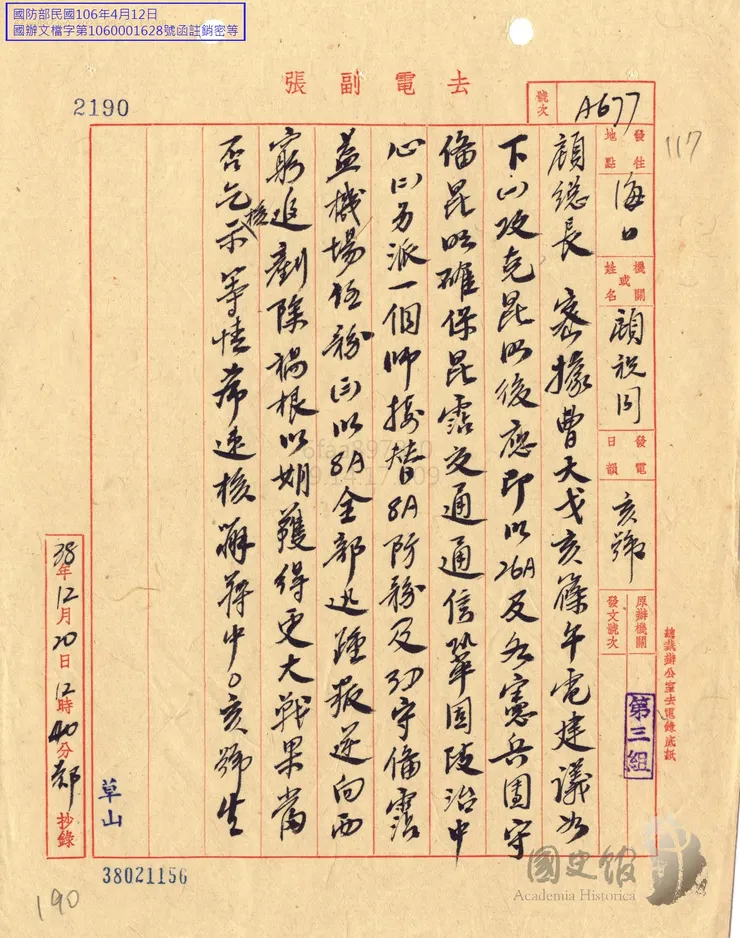 國防部民國106年4月12日
國辦文檔字第1060001628號函註銷密等
去電副張
2190
號次
A677
117
發往地點
海口
機關或姓名
顧祝同
發電日韻
亥號
原辦機關
發文號次
第三組
總裁辦公室去電錄底紙
顧總長 密據曹天戈亥篠午電建議如
下(一)攻克昆明後應即以26A及各憲兵團守
備昆明確保昆霑交通通信鞏固陸治中
心(二)另派一個師接替8A防務及防守備霑
益機場任務(三)以8A全部迅踵叛逆向西
窮追剷除禍根以期獲得更大戰果當
否乞核示等情希速核辦蔣中○亥號生
38年12月20日12時40分鄭抄錄
草山
38021156
190
國史館
Academia Historica